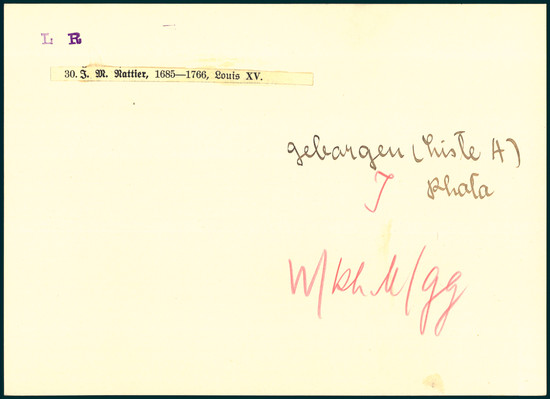 L R
30. J. M. Nattier, 1685—1766, Louis XV.
geborgen (Liste A)
J Khala
W/Kh.M/gg